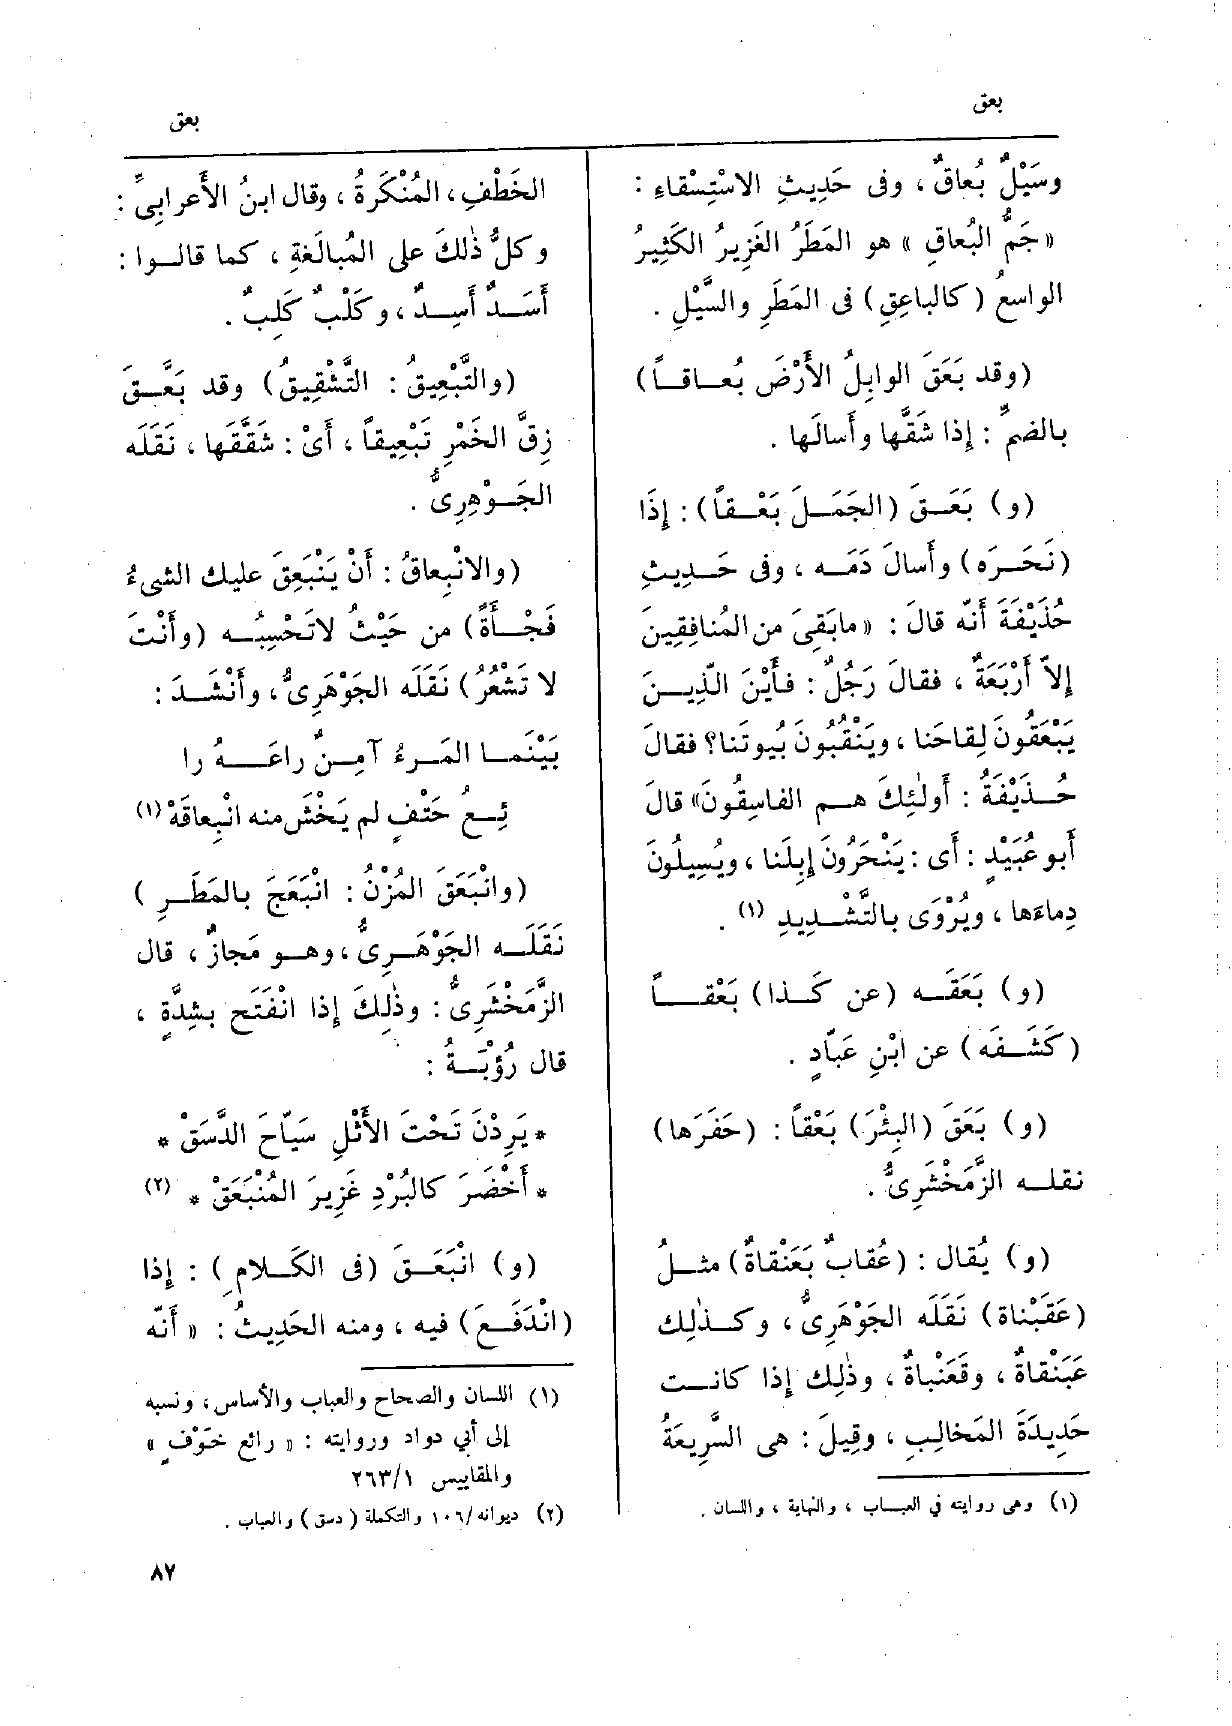 بعق
وسَيْلٌ بُعاقٌ ، وفى حَدِيثِ الاسْتِسْقاءِ :
« جَمُّ البُعاقِ » هو المَطَرُ الغَزِيرُ الكَثِيرُ
الواسعُ ( كالباعِقِ ) فى المَطَرِ والسَّيْلِ .
( وقد بَعَقَ الوابِلُ الأَرْضَ بُعـاقـاً )
بالضمِّ : إذا شقَّها وأسالَها .
( و ) بَعَـقَ ( الجَمَـلَ بَعْـقاً ) : إِذَا
( نَحَـرَه ) وأَسالَ دَمَـه ، وفى حَـدِيثِ
حُذَيْفَةَ أَنَّه قالَ : « مابَقِىَ من المُنافِقِينَ
إِلاّ أَرْبَعَةٌ ، فقالَ رَجُلٌ : فأَيْنَ الّذِيـنَ
يَبْعَقُونَ لِقاحَنا ، ويَنْقُبُونَ بُيوتَنا؟ فقالَ
حُـذَيْفَةُ : أُولٰئِكَ هـم الفاسِقُونَ » قالَ
أَبو عُبَيْدٍ : أَى : يَنْحَرُونَ إِبِلَنا ، ويُسِيلُونَ
دِماءَها ، ويُرْوَى بالتَّشْـدِيدِ (١) .
( و ) بَعَقَـه ( عن كَـذا ) بَعْقـاً
( كَشَـفَه ) عن ابْنِ عَبّادٍ .
( و ) بَعَقَ ( البِئْرَ ) بَعْقاً : ( حَفَرَها )
نقلـه الزَّمَخْشَرِىُّ .
( و ) يُقال : ( عُقابٌ بَعَنْقاةٌ ) مثـلُ
( عَقَبْناة ) نَقَلَه الجَوْهَرِىُّ ، وكـذٰلِك
عَبَنْقاةٌ ، وقَعَنْباةٌ ، وذٰلِك إذا كانـت
حَدِيدَةَ المَخالِبِ ، وقِيلَ : هى السَّرِيعَةُ
(١) وهى روايته في العبـاب ، والنهاية ، واللسان .
بعق
الخَطْفِ ، المُنْكَرةُ ، وقال ابنُ الأَعرابِىِّ :
وكلُّ ذٰلكَ على المُبالَغةِ ، كما قالـوا :
أَسَـدٌ أَسِـدٌ ، وكَلْبٌ كَلِبٌ .
( والتَّبْعِيقُ : التَّشْقِيقُ ) وقد بَعَّـقَ
زِقَّ الخَمْرِ تَبْعِيقاً ، أَىْ : شَقَّقَها ، نَقَلَه
الجَـوْهَرِىُّ .
( والانْبِعاقُ : أَنْ يَنْبَعِقَ عليك الشىءُ
فَجْـأَةً ) من حَيْثُ لاتَحْسِبُـه ( وأَنْتَ
لا تَشْعُرُ ) نَقَلَه الجَوْهَرِىُّ ، وأَنْشَـدَ :
بَيْنَمـا المَـرءُ آمِـنٌ راعَـهُ را
ئِـعُ حَتْفٍ لم يَخْشَ منه انْبِعاقَهْ (١)
( وانْبَعَقَ المُزْنُ : انْبَعَجَ بالمَطَـرِ )
نَقَلَـه الجَوْهَـرِىُّ ، وهـو مَجازٌ ، قال
الزَّمَخْشَرِىُّ : وذٰلِكَ إِذا انْفَتَح بشِدَّةٍ ،
قال رُؤْبَـةُ :
* يَرِدْنَ تَحْتَ الأَثْلِ سَيّاحَ الدَّسَقْ *
* أَخْضَرَ كالبُرْدِ غَزِيرَ المُنْبَعَقْ * (٢)
( و ) انْبَعَـقَ ( فى الكَـلامِ ) : إِذا
( انْدَفَـعَ ) فيه ، ومنه الحَدِيثُ : « أَنَّه
(١) اللسان والصحاح والعباب والأساس ، ونسبه
إلى أبي دواد وروايته : « رائع خَوْفٍ »
والمقاييس ٢٦٣/١
(٢) ديوانه /١٠٦ والتكملة ( دسق ) والعباب .
٨٧